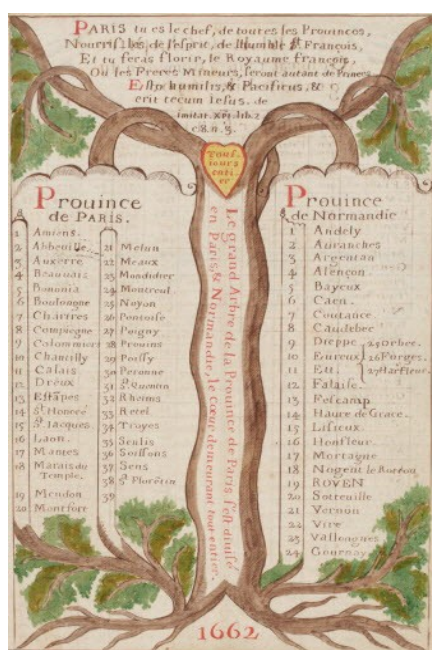 PARIS tu es le chef, de toutes ses Prouinces,
Nourris-les de l'esprit, de l'humble St François,
Et tu feras florir, le Royaume françois,
Ou ses Freres Mineurs, seront autant de Princes.
Esto humilis, & Pacificus, &
erit tecum Iesus. de
imitat. Xpi. lib. 2
c. 8. n. 3.
Tous-
iours
enti
er
Prouince
de PARIS.
1 Amiens.
2 Abbeuille
3 Auxerre
4 Beauuais
5 Bononia
6 Boulongne
7 Chartres
8 Compiegne
9 Colommiers
10 Chantilly
11 Calais
12 Dreux
13 Estapes
14 St Honoré
15 St Jacques
16 Laon.
17 Mantes
18 Marais du
Temple.
19 Meudon
20 Montfort
21 Melun
22 Meaux
23 Mondidier
24 Montreul
25 Noyon
26 Pontoise
27 Poigny
28 Prouins
29 Poissy
30 Peronne
31 St Quentin
32 Rheims
33 Retel
34 Troyes
35 Senlis
36 Soissons
37 Sens
38 St Florētin
39
Le grand Arbre de la Prouince de Paris, s'est diuisé
en Paris, & Normandie, le Cœur demeurant tout entier.
Prouince
de Normandie
1 Andely
2 Auranches
3 Argentan
4 Alençon
5 Bayeux
6 Caen
7 Coutance
8 Caudebec
9 Dieppe
10 Eureux
11 Eu.
25 Orbec.
26 Forges.
27 Harfleur.
12 Falaise.
13 Fescamp
14 Haure de Grace.
15 Lisieux
16 Honfleur
17 Mortagne
18 Nogent le Rotrou
19 ROVEN
20 Sotteuille
21 Vernon
22 Vire
23 Vallongnes
24 Gournay
1662